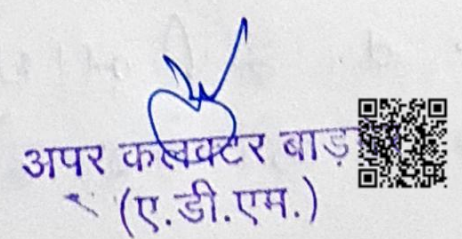 अपर कलक्टर
(ए.डी.एम.)